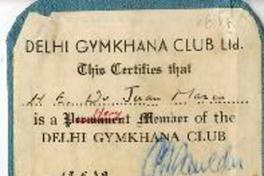 DELHI GYMKHANA CLUB Ltd.
This Certifies that
H. E. Dr. Juan Marin
Hony
is a Permanent Member of the
DELHI GYMKHANA CLUB